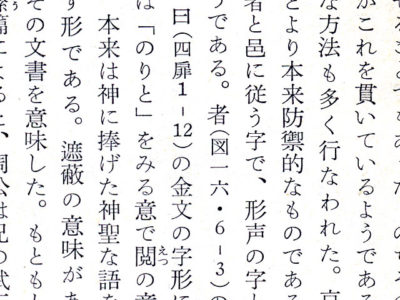 がこれを貫いているようである
な方法も多く行なわれた。
とより本来防禦的なものである
者と邑に従う字で、形声の字
うである。者(図一六・6-3)の
曰(四扉1-12)の金文の字形に
は「のりと」をみる意で閲の意
本来は神に捧げた神聖な語を
す形である。遮蔽の意味があ
その文書を意味した。もとも
篇によると、周公は兄の武王